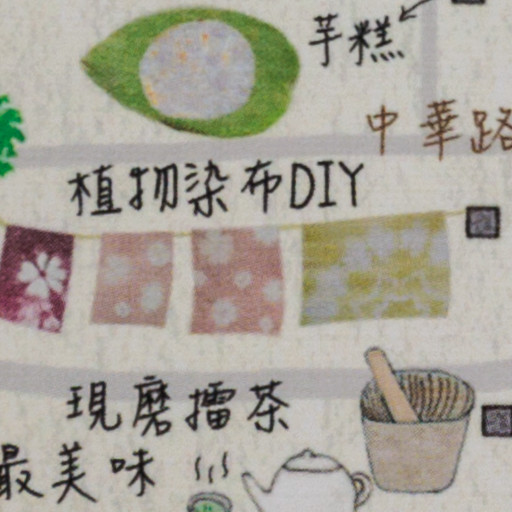 芋糕
中華路
植物染布DIY
現磨擂茶
最美味